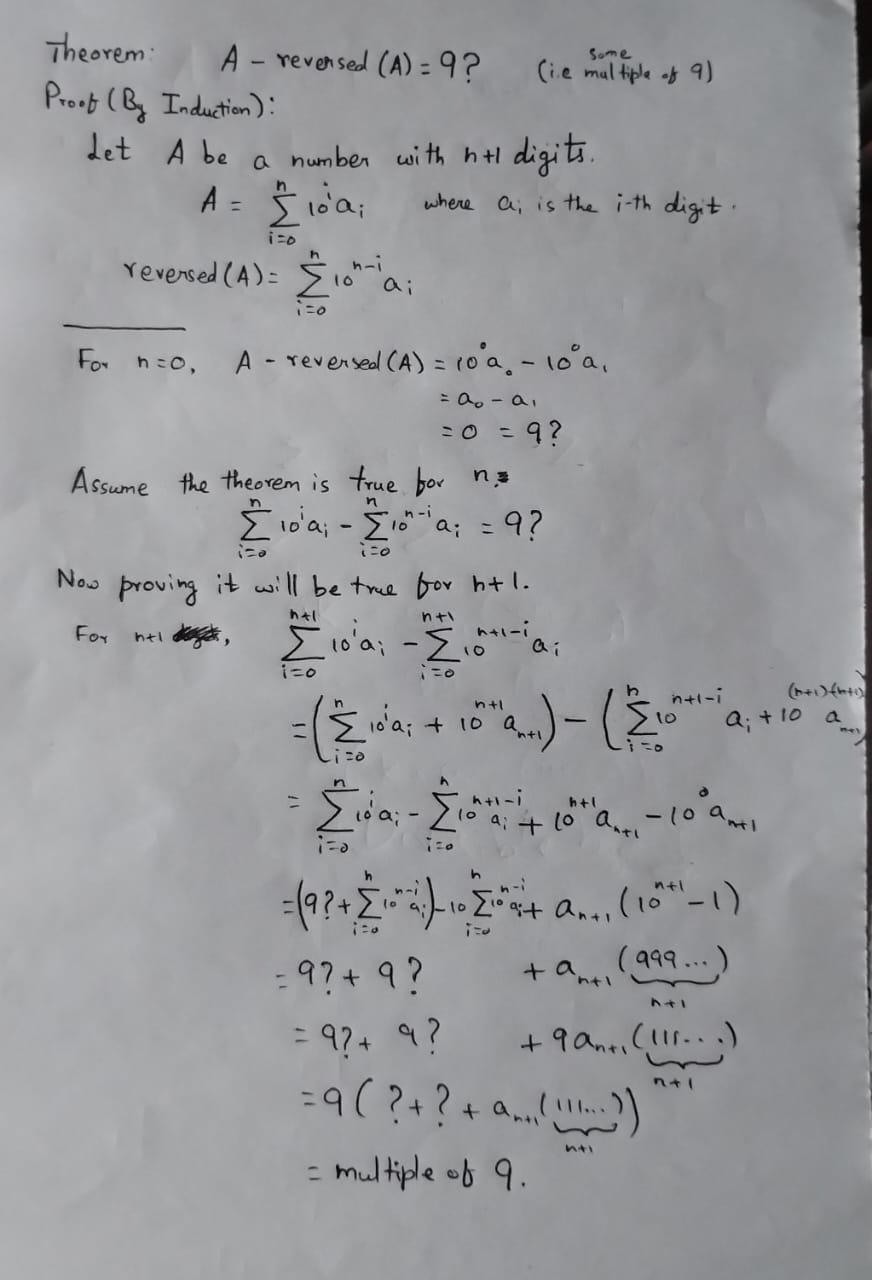 Theorem: A - reversed (A) = 9? (i.e some multiple of 9)
Proof (By Induction):
Let A be a number with n+1 digits.
A = \sum_{i=0}^{n} 10^i a_i where a_i is the i-th digit.
reversed (A) = \sum_{i=0}^{n} 10^{n-i} a_i
For n=0, A - reversed (A) = 10^0 a_0 - 10^0 a_1
= a_0 - a_1
= 0 = 9?
Assume the theorem is true for n.
\sum_{i=0}^{n} 10^i a_i - \sum_{i=0}^{n} 10^{n-i} a_i = 9?
Now proving it will be true for n+1.
For n+1, \sum_{i=0}^{n+1} 10^i a_i - \sum_{i=0}^{n+1} 10^{n+1-i} a_i
= (\sum_{i=0}^{n} 10^i a_i + 10^{n+1} a_{n+1}) - (\sum_{i=0}^{n} 10^{n+1-i} a_i + 10^{(n+1)-(n+1)} a_{n+1})
= \sum_{i=0}^{n} 10^i a_i - \sum_{i=0}^{n} 10^{n+1-i} a_i + 10^{n+1} a_{n+1} - 10^0 a_{n+1}
= (9? + \sum_{i=0}^{n} 10^{n-i} a_i) - 10 \sum_{i=0}^{n} 10^{n-i} a_i + a_{n+1} (10^{n+1} - 1)
= 9? + 9? + a_{n+1} (\underbrace{999...}_{n+1})
= 9? + 9? + 9a_{n+1} (\underbrace{111...}_{n+1})
= 9 (? + ? + a_{n+1} (\underbrace{111...}_{n+1}))
= multiple of 9.